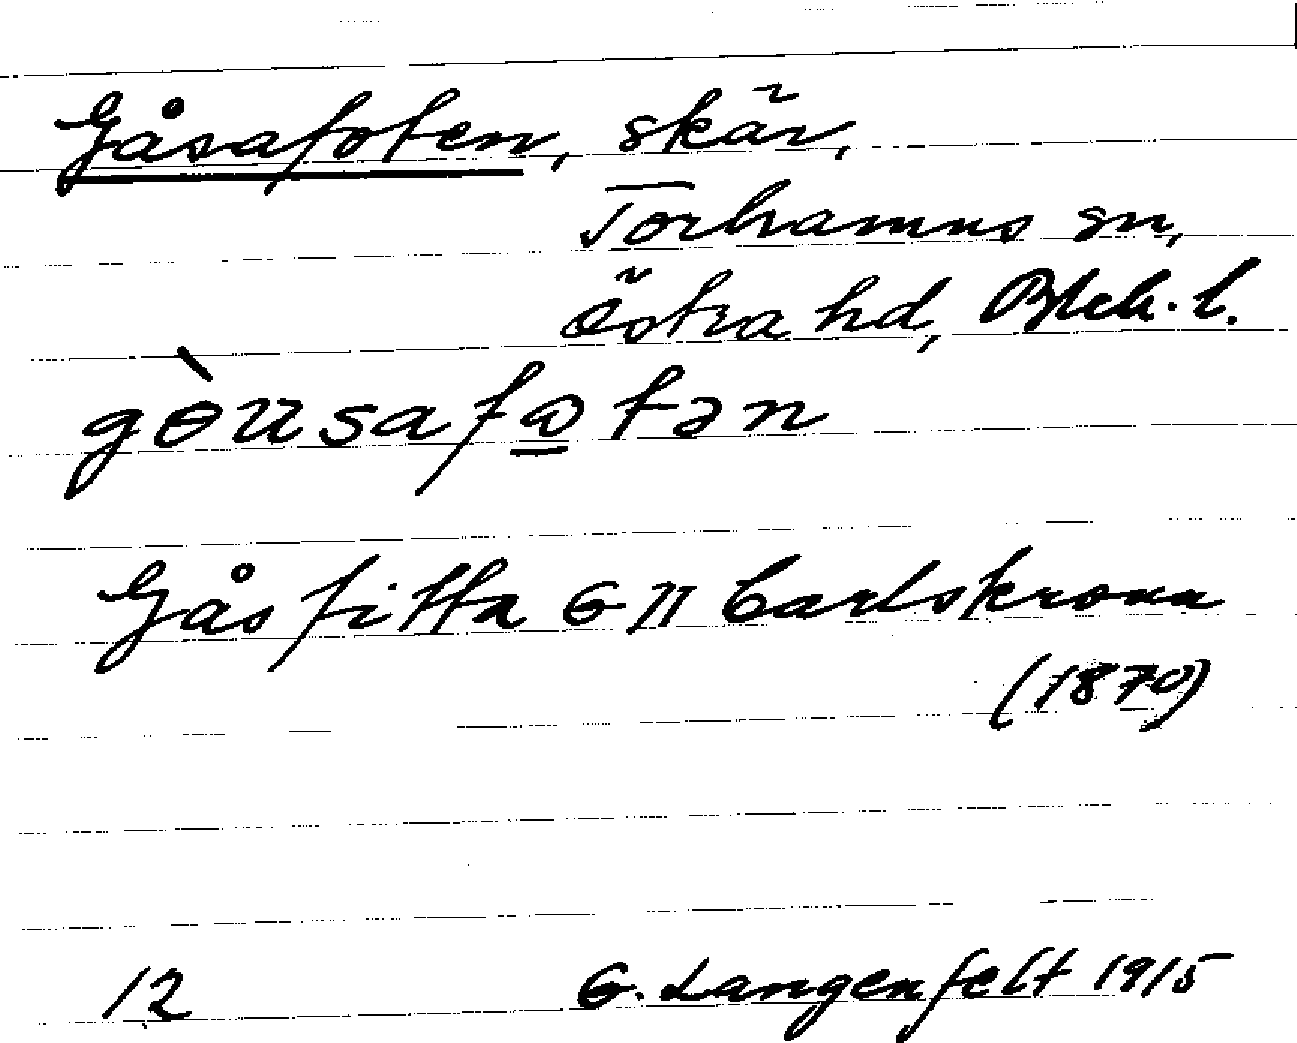 Gåsafoten, skär,
Torhamns sn,
Östra hd, Blek. l.
gɵ̀usafɷ̲tən
Gåsfitta GK Carlskrona
(1870)
12 G. Langenfelt 1915